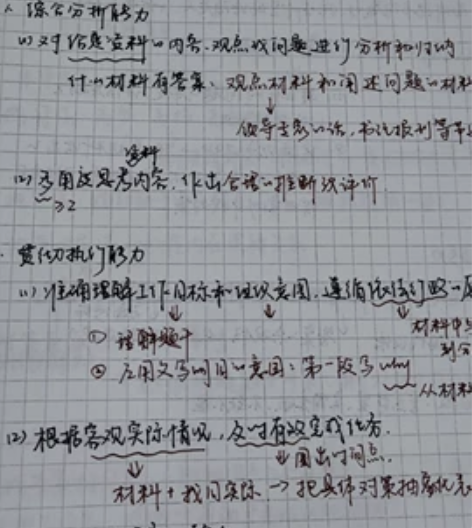 综合分析能力
(1) 对给定资料的内容、观点或问题进行分析和归纳
什么材料有答案、观点材料和阐述问题的材料
↓
领导专家的话,书法报刊等
资料
(2) 多角度思考内容,作出合理的推断或评价
≥2
贯彻执行能力
(1) 准确理解工作目标和组织意图,遵循依法行政
↓ ↓ ↓
① 读解题干 材料中
② 应用文写作目的意图:第一段写why 从材料
(2) 根据客观实际情况,及时有效完成任务.
↓ ↓圈出时间点.
材料+找问实际 → 把具体对策抽象化